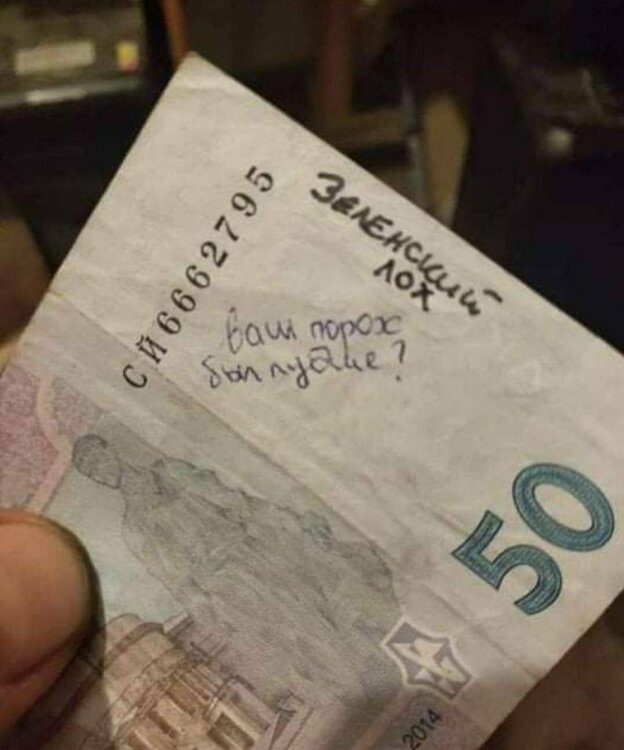 СЙ6662795
ЗЕЛЕНСКИЙ
ЛОХ
Ваш порох
был лучше?
50
2014